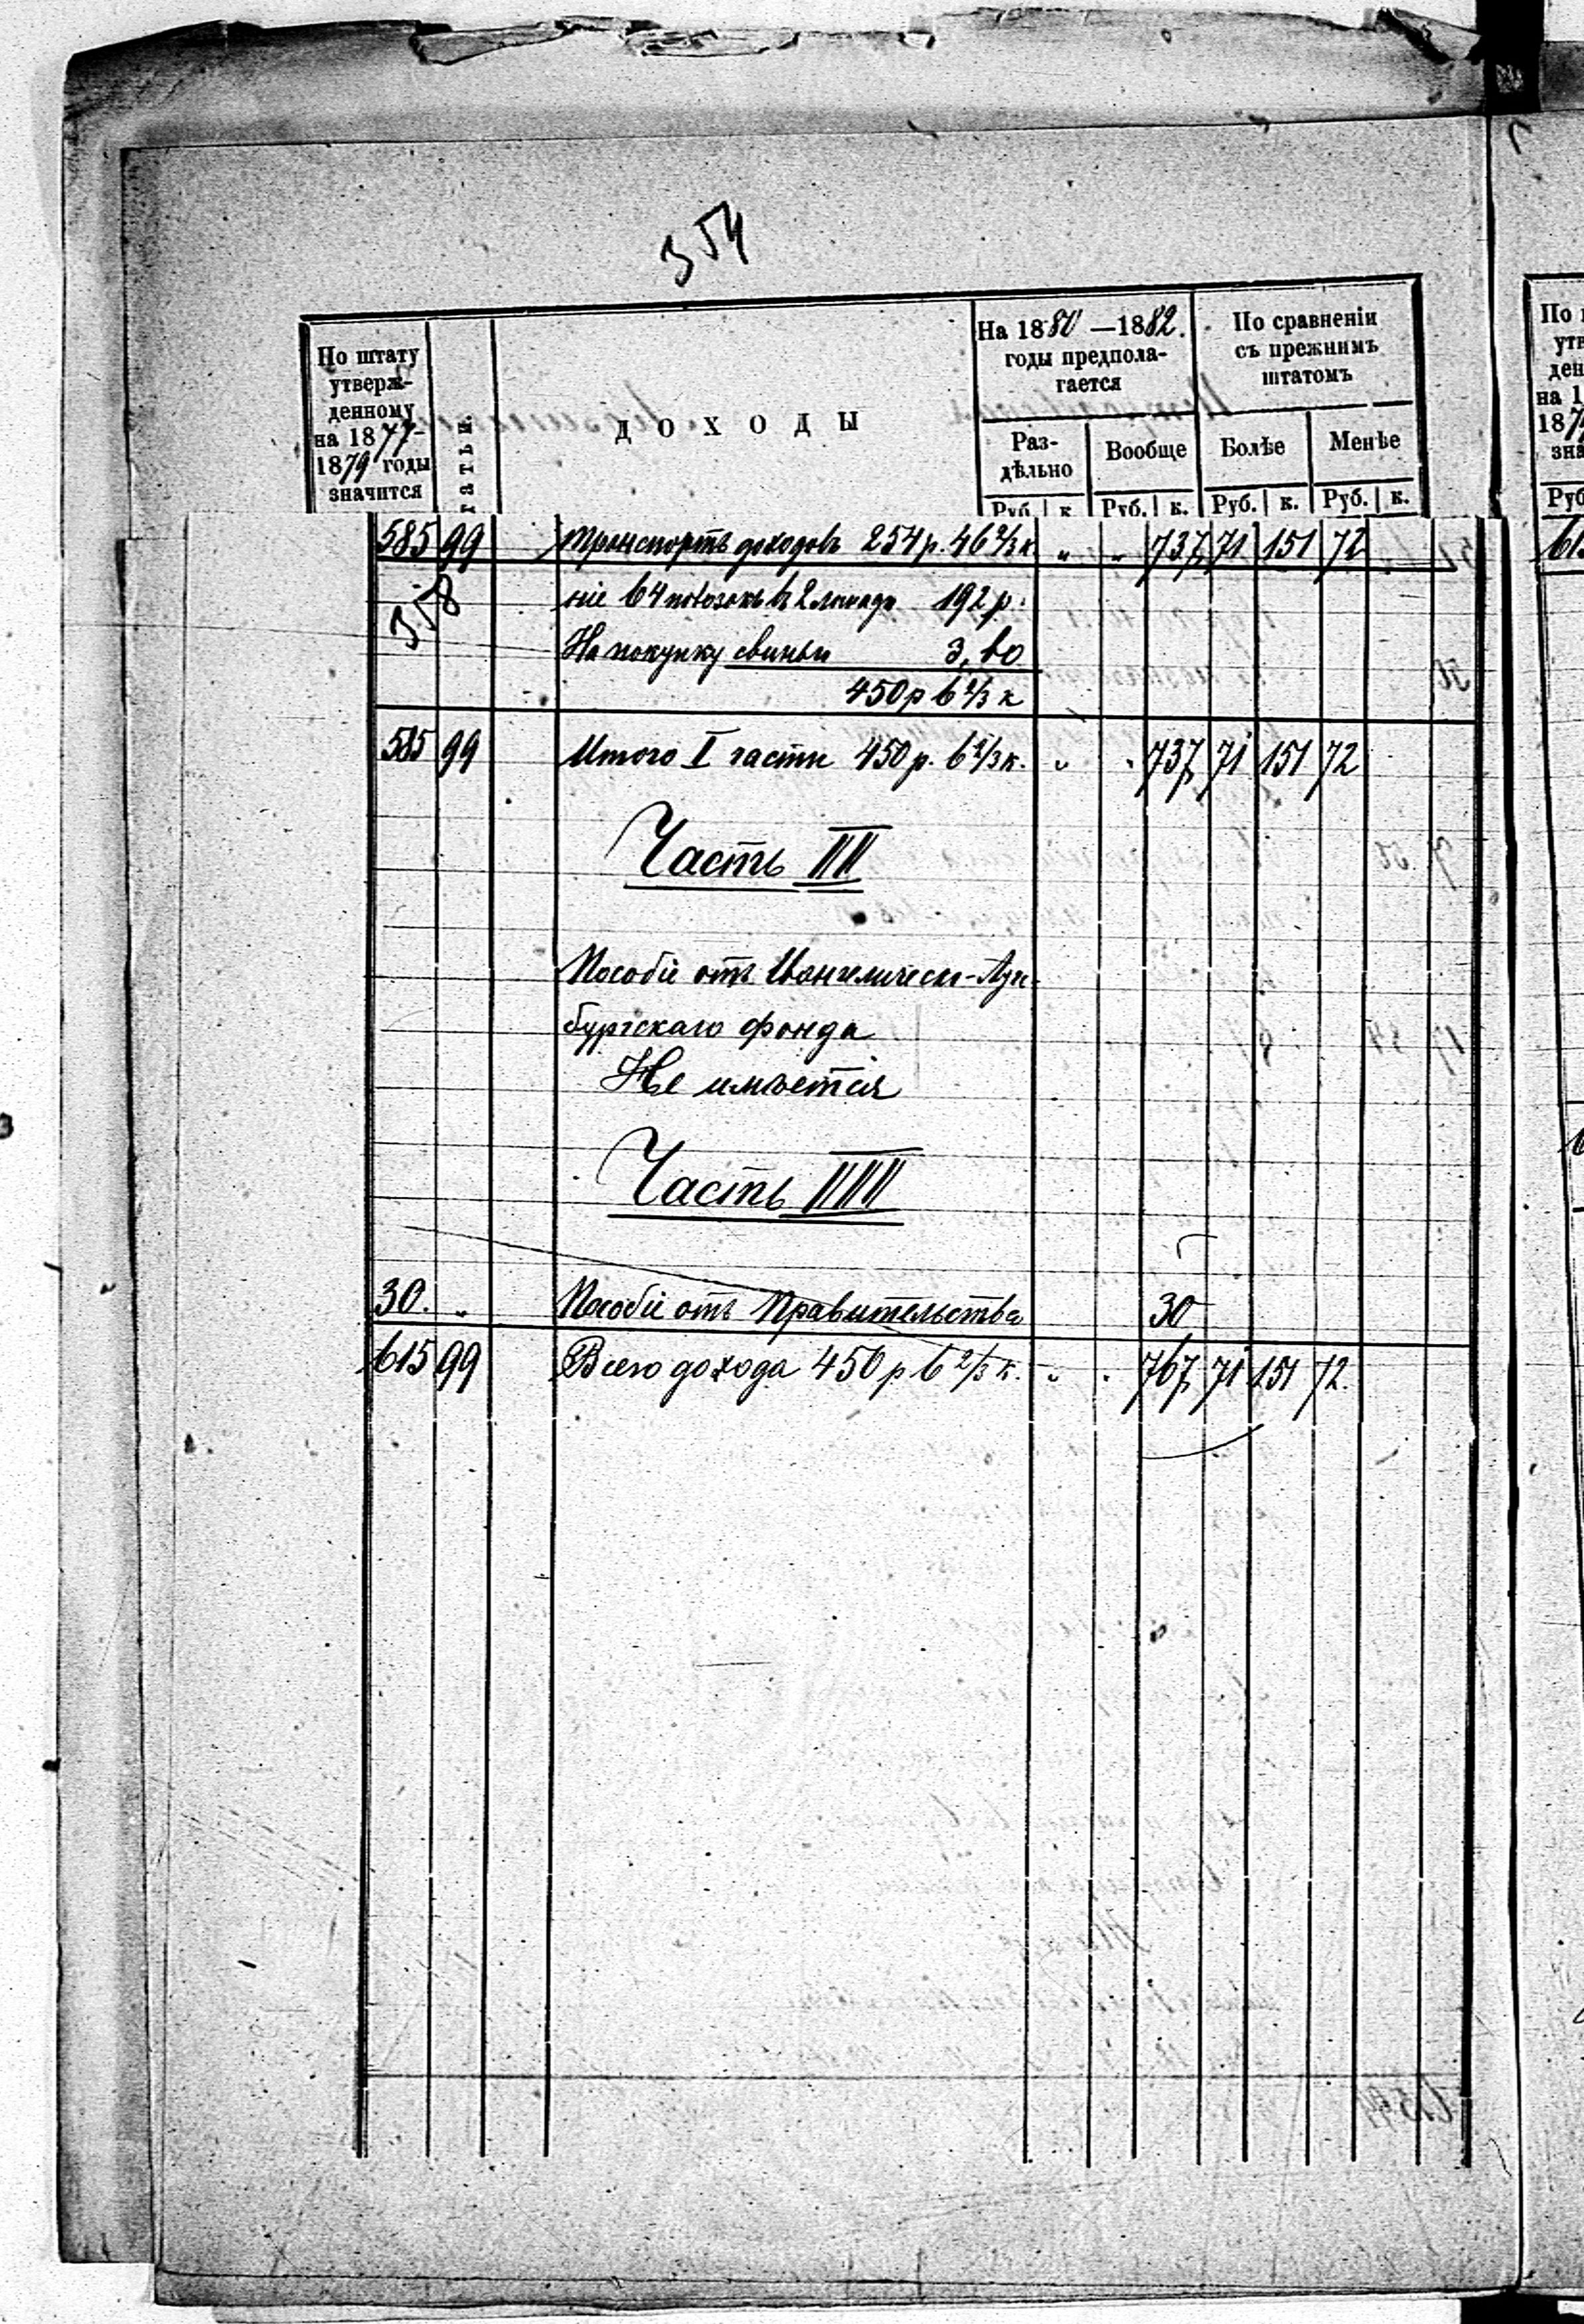 354
По штату
утверж-
денному
на 1877-
1879 годы
значится
ДОХОДЫ
На 1880 —1882.
годы предпола-
гается
Раз-
дѣльно
Вообще
По сравненію
съ прежнимъ
штатомъ
Болѣе
Менѣе
Руб. к. Руб. к. Руб. к. Руб. к.
585 99 Транспортъ доходовъ 254 р. 46 2/3 к „ „ 737 71 151 72
358
ніе 64 повозокъ въ 2 лошади 192 р.
На покупку свиньи 3, 60
450 р 6 2/3 к
585 99 Итого I части 450 р. 6 2/3 к. „ „ 737 71 151 72
Часть III
Пособіе отъ
бургскаго фонда
Не имѣется
Часть IIII
30. „ Пособіе отъ Правительства 30
615 99 Всего дохода 450 р 6 2/3 к. „ „ 767 71 151 72.
По
утв
ден
на 1
187
зна
Руб